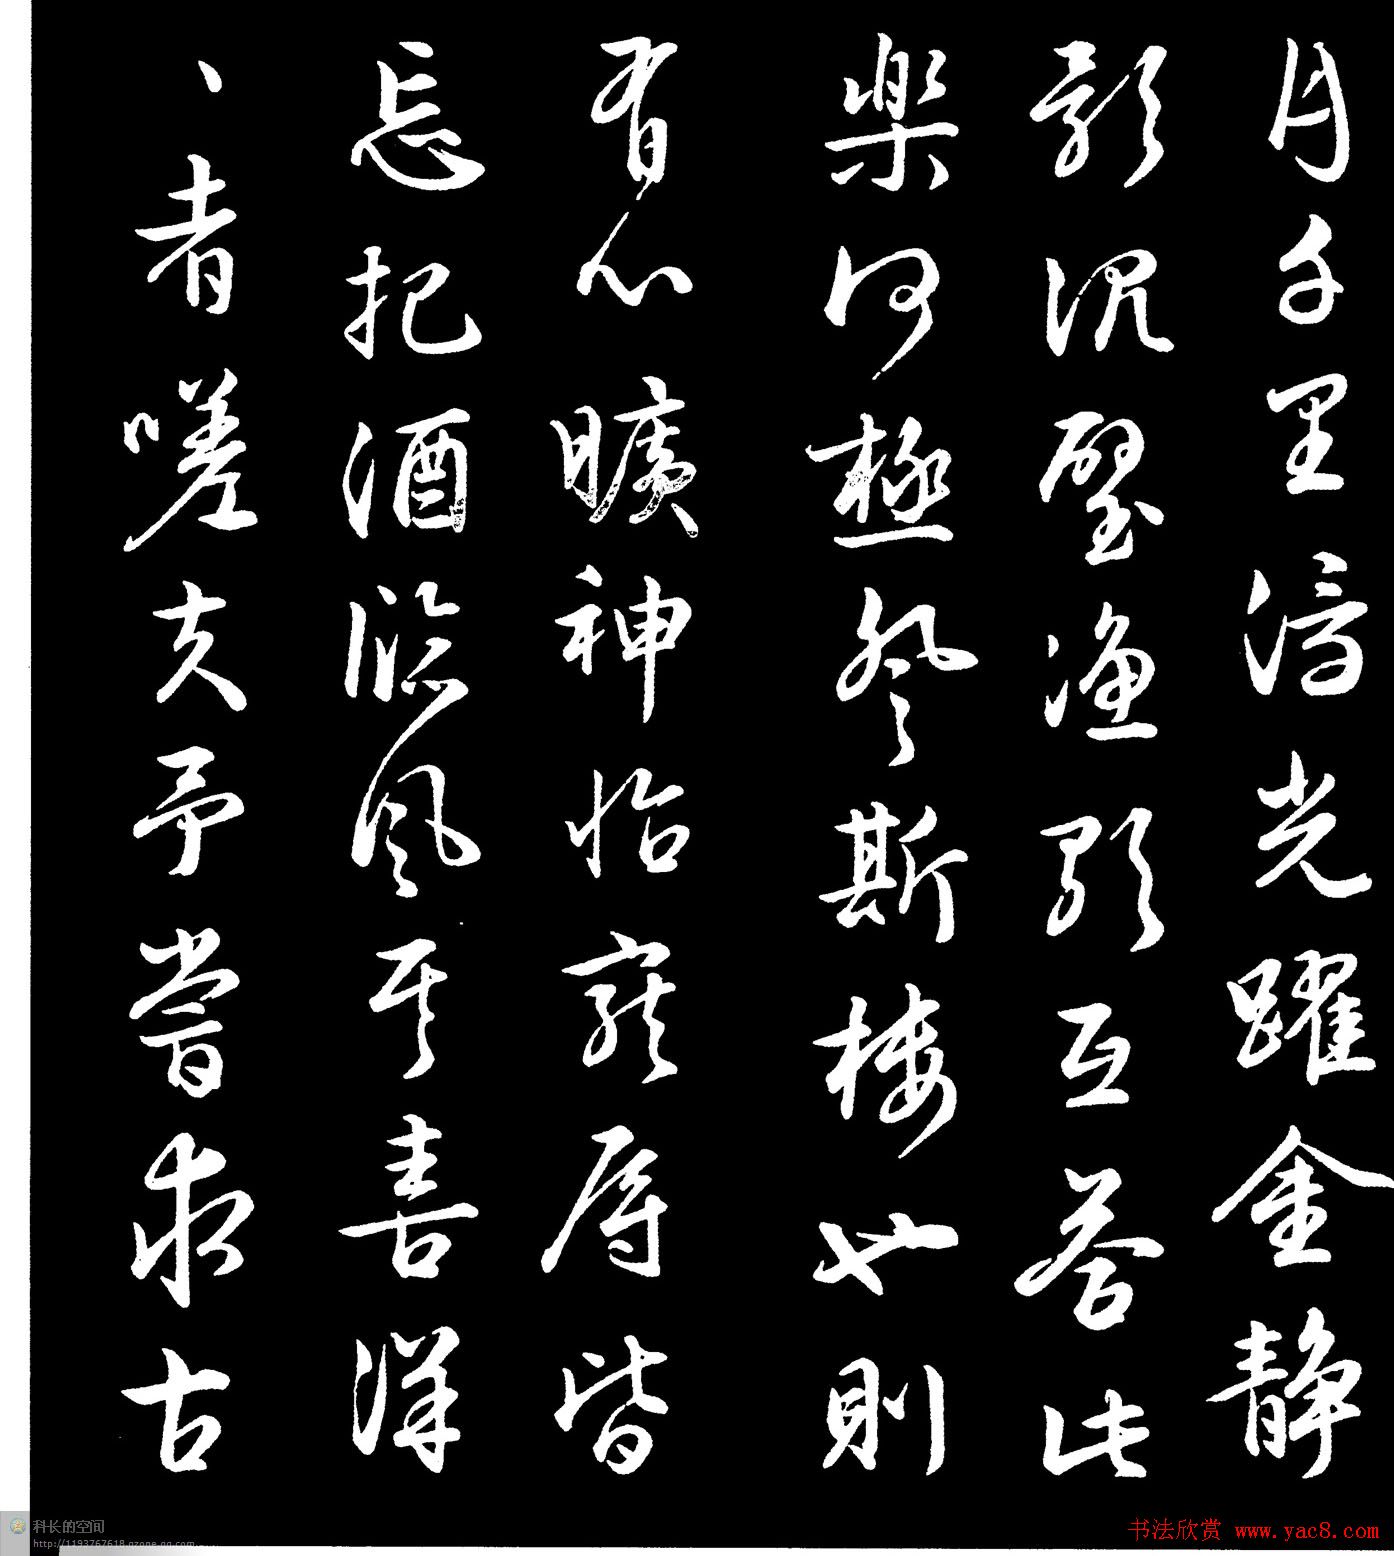 月千里浮光躍金静
影沉璧漁歌互答此
樂何極登斯樓也則
有心曠神怡寵辱皆
忘把酒臨風其喜洋
丶者嗟夫予嘗求古
科长的空间
http://1193767618.qzone.qq.com
书法欣赏 www.yac8.com